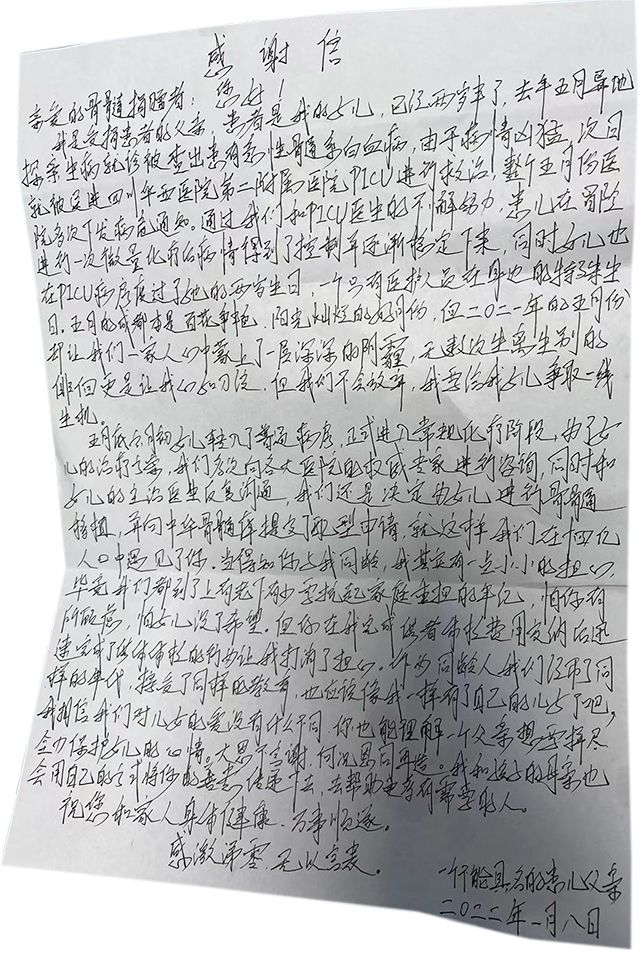 感谢信
亲爱的骨髓捐赠者：您好！
我是受捐患者的父亲，患者是我的女儿，已经两岁半了，去年五月异地
探亲生病就诊被查出患有急性骨髓系白血病，由于病情凶猛，次日
就被送进四川华西医院第二附属医院PICU进行救治，整个五月份医
院多次下发病危通知。通过我们和PICU医生的不懈努力，患儿在冒险
进行一次微量化疗后病情得到了控制并逐渐稳定下来，同时女儿也
在PICU病房度过了她的两岁生日，一个只有医护人员在身边的特殊生
日。五月的成都本是百花争艳，阳光灿烂的好月份，但二〇二一年的五月份
却让我们一家人心中蒙上了一层深深的阴霾，无数次生离死别的
徘徊更是让我心如刀绞，但我们不会放弃，我要给我女儿争取一线
生机。
五月底六月初女儿转入了普通病房，正式进入常规化疗阶段，为了女
儿的治疗方案，我们多次向各大医院的权威专家进行咨询，同时和
女儿的主治医生反复沟通，我们还是决定为女儿进行骨髓
移植，并向中华骨髓库提交了配型申请，就这样我们在十四亿
人口中遇见了你。当得知你与我同龄，我其实有一点小小的担心，
毕竟我们都到了上有老下有小要扛起家庭重担的年纪，怕你有
所顾虑，怕女儿没了希望。但你在我完成供者体检费用交纳后迅
速完成了供体体检的行为让我打消了担心。作为同龄人我们经历了同
样的年代，接受了同样的教育，也应该像我一样有了自己的儿女了吧，
我相信我们对儿女的爱没有什么不同，你也能理解一个父亲想要拼尽
全力保护女儿的心情。大恩不言谢，何况恩同再造。我和孩子的母亲也
会用自己的方式将你的善意传递下去，去帮助更多有需要的人。
祝您和家人身体健康、万事顺遂。
感激涕零，无以言表。
一个不能具名的患儿父亲
二〇二二年一月八日